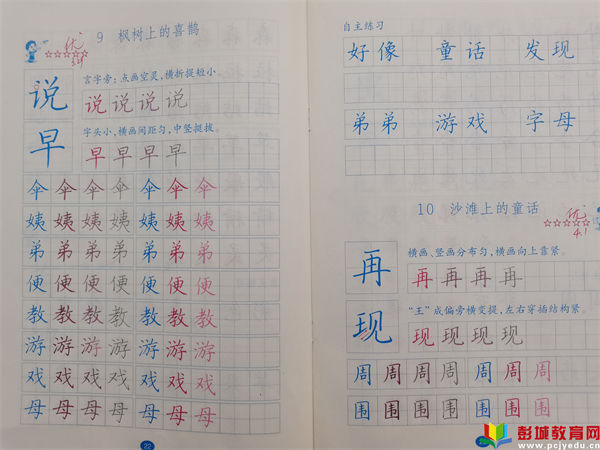 9 枫树上的喜鹊
优
3.9
说
言字旁：点画空灵，横折提短小。
说 说 说 说
早
字头小，横画间距匀，中竖挺拔。
早 早 早 早
伞 伞 伞 伞 伞 伞 伞
姨 姨 姨 姨 姨 姨 姨
弟 弟 弟 弟 弟 弟 弟
便 便 便 便 便 便 便
教 教 教 教 教 教 教
游 游 游 游 游 游 游
戏 戏 戏 戏 戏 戏 戏
母 母 母 母 母 母 母
22
自主练习
好像 童话 发现
弟弟 游戏 字母
10 沙滩上的童话
优
4.1
再
横画、竖画分布匀，横画向上靠紧。
再 再 再 再
现
“王”成偏旁横变提，左右穿插结构紧。
现 现 现 现
周 周 周 周 周 周
围 围 围 围 围 围
彭城教育网
www.pcjyedu.com